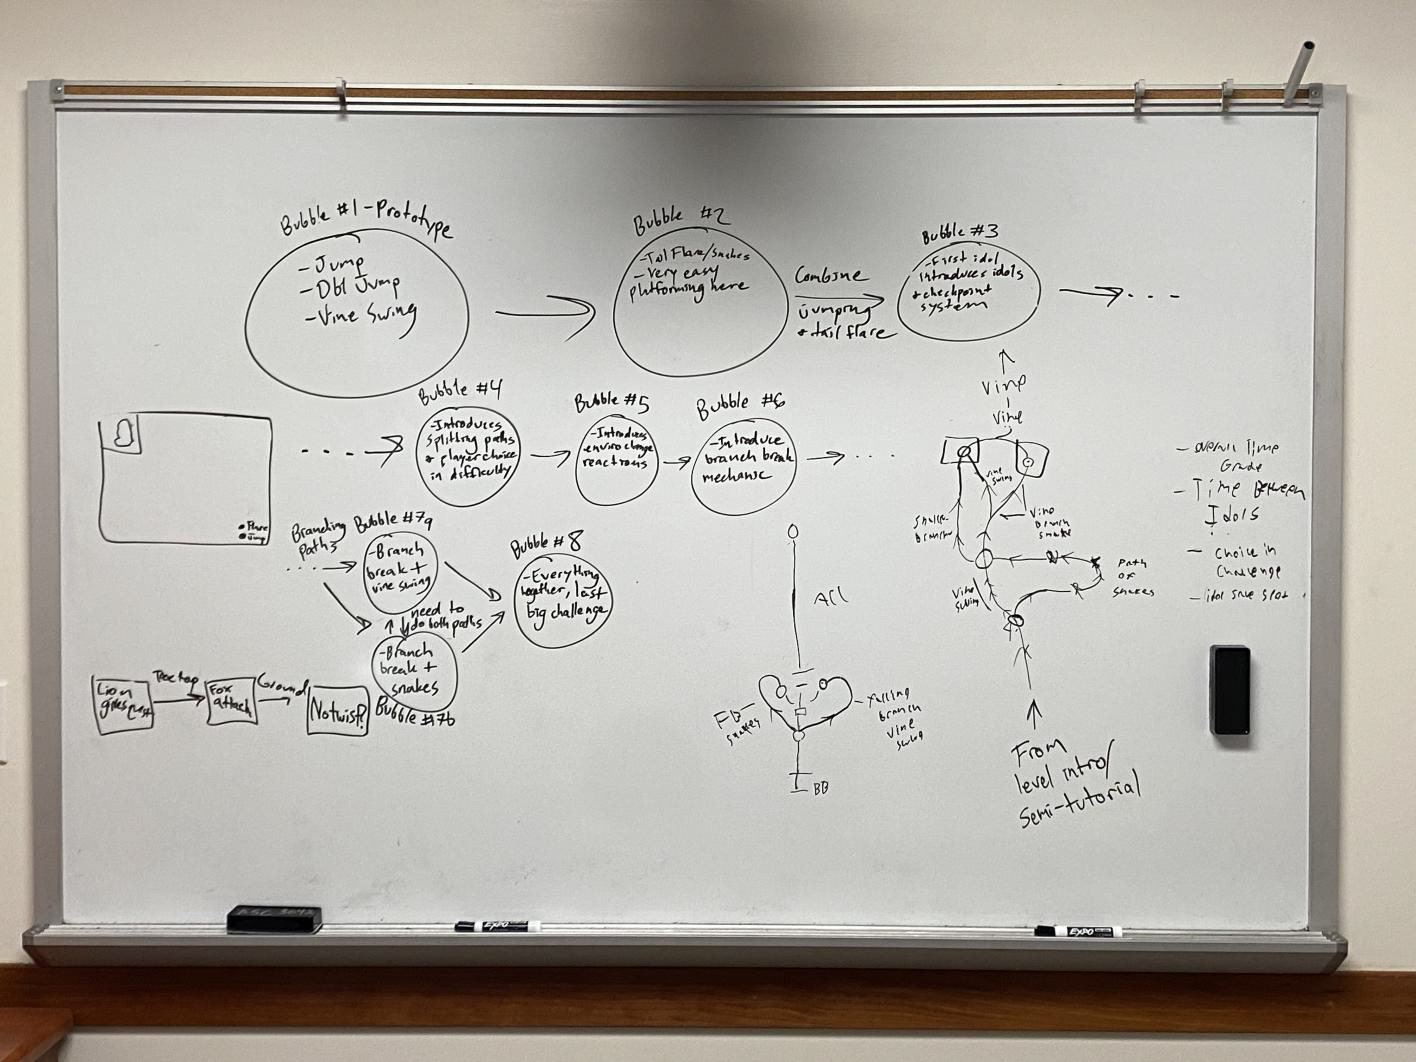 Bubble #1-Prototype
- Jump
- Dbl Jump
- Vine Swing
Bubble #2
- Tail Flare/Snakes
- Very easy
platforming here
Combine
jumping
+ tail flare
Bubble #3
- First idol
introduces idols
+ checkpoint
system
Bubble #4
- Introduces
splitting paths
+ player choice
in difficulty
Bubble #5
- Introduces
enviro change
reactions
Bubble #6
- Introduce
branch break
mechanic
Flare
Jump
Branching
paths
Bubble #7a
- Branch
break +
vine swing
need to
do both paths
- Branch
break +
snakes
Bubble #7b
Bubble #8
- Everything
together, last
big challenge
Lion
gives quest
Treetop
Fox
attack
Ground
No twist?
ACL
FB
snakes
falling
branch
vine
swing
BB
Vine
Vine
vine
swing
Vine
Branch
snake
Vine
swing
Path
of
snakes
From
level intro/
semi-tutorial
- overall Time
Grade
- Time Between
Idols
- Choice in
Challenge
- idol save spot
EXPO
EXPO